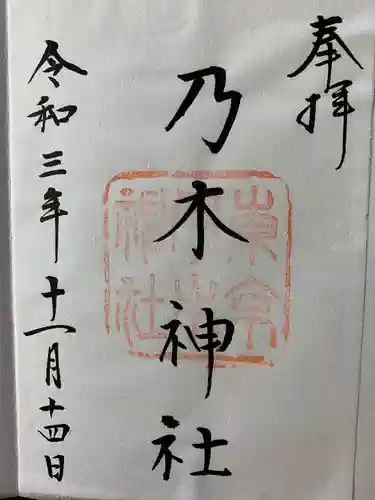 奉拝
乃木神社
令和三年十一月十四日
東京
乃木
神社